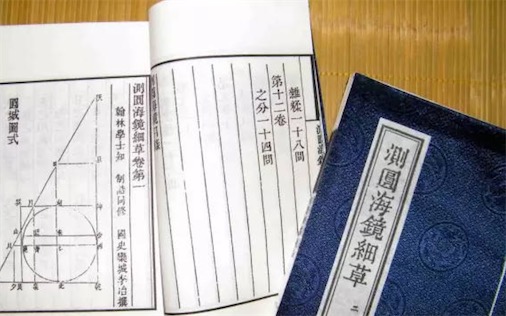 雜糅一十八問
第十二卷
之分一十四問
測圓海鏡細草卷第一
翰林學士知 制誥同修 國史欒城李冶撰
圓城圖式
測圓海鏡細草
二